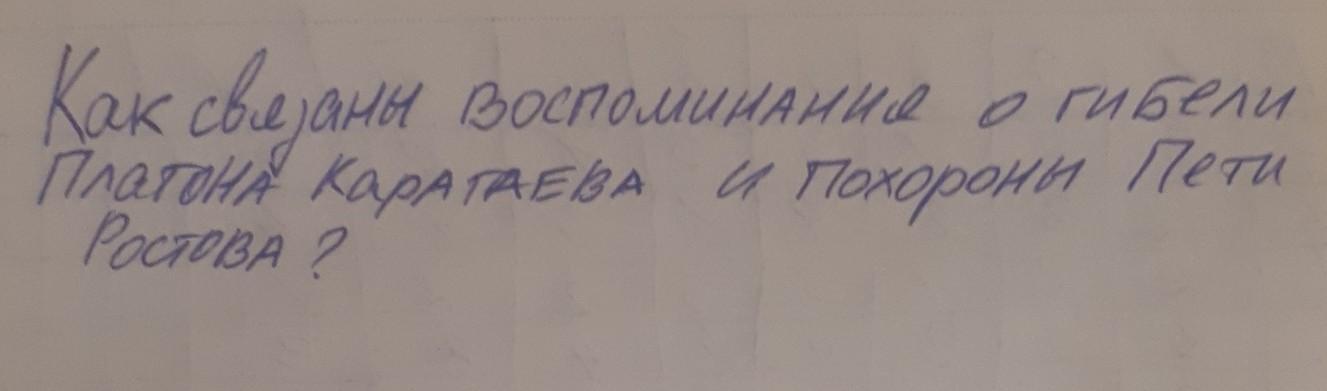 Как связаны воспоминания о гибели
Платона Каратаева и похороны Пети
Ростова?